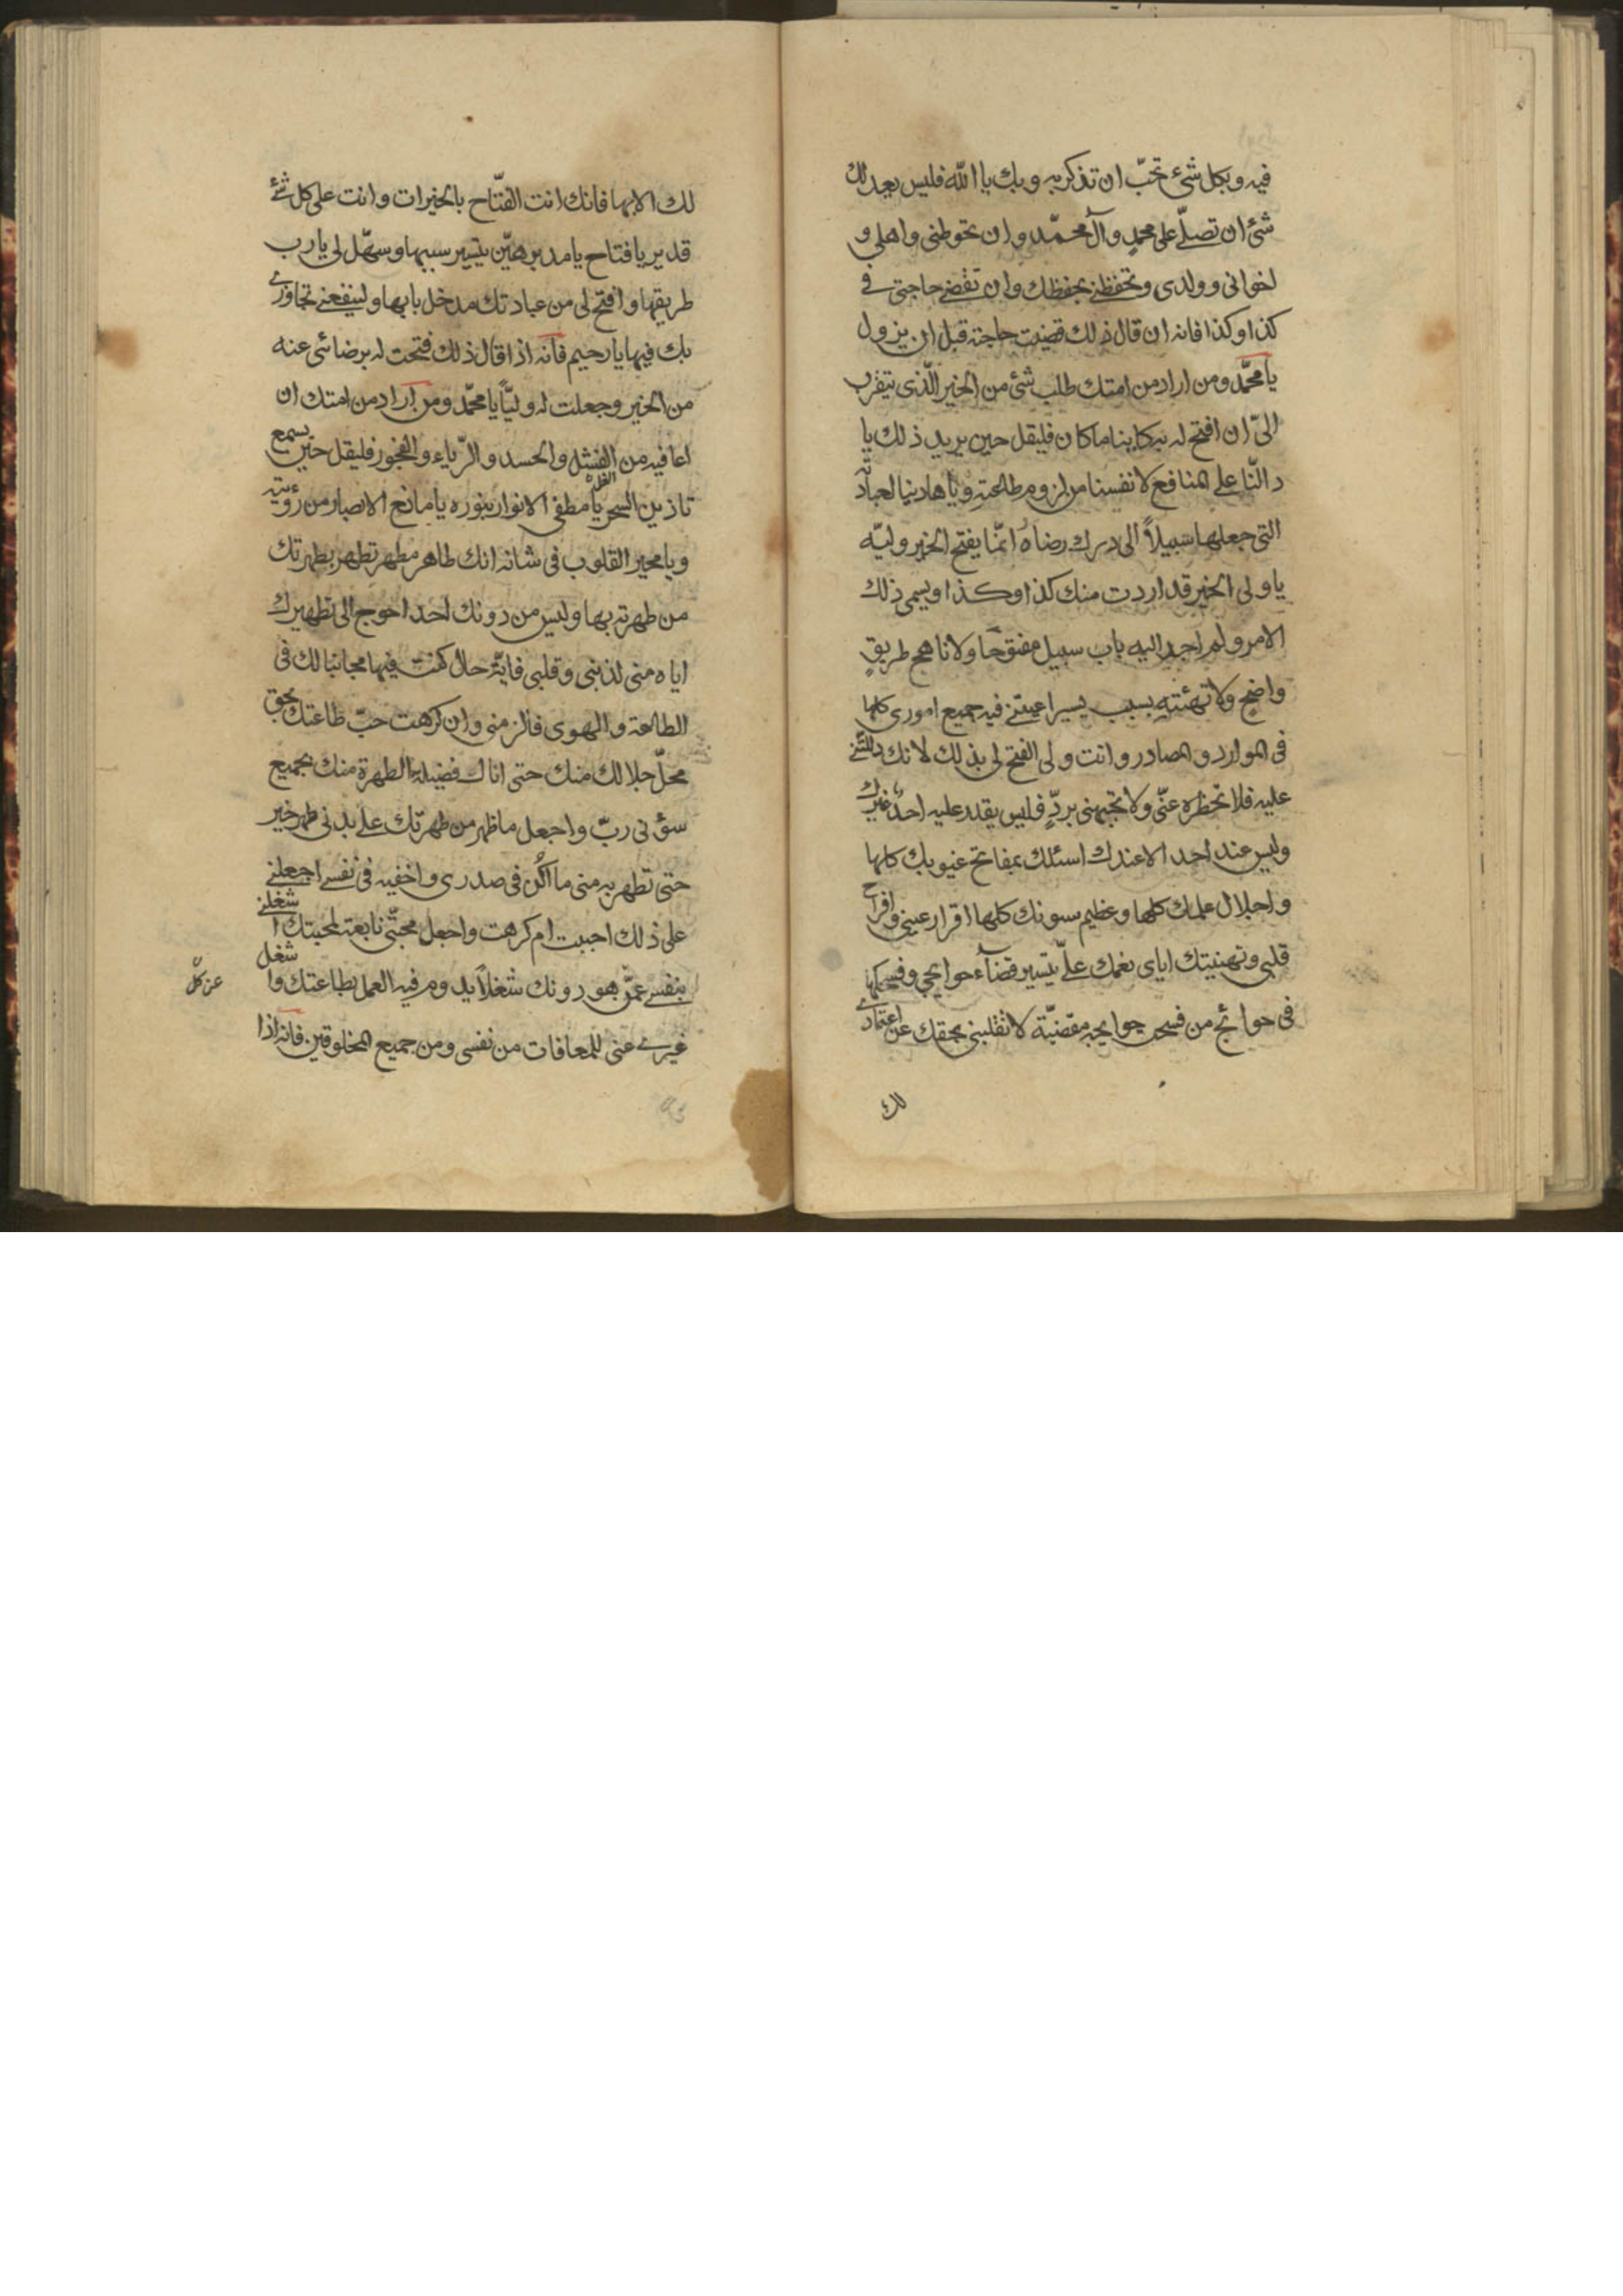 فيه وبكل شئ تحبّ ان تذكر به وبك يا الله فليس يعدلك
شئ ان تصلّي على محمدٍ وآل محمّد وان تحوطنى واهلى و
اخوانى وولدى وتحفظنى بحفظك وان تقضى حاجتى فى
كذا وكذا فانه ان قال ذلك قضيت حاجته قبل ان يزول
يا محمّد ومن اراد من امتك طلب شئ من الخير الّذى يتقرب
الىّ ان افتح له به كاينا ما كان فليقل حين يريد ذلك يا
دالّنا على المنافع لانفسنا من لزوم طاعته ويا هادينا لعبادته
التى جعلها سبيلاً الى درك رضاه انمّا يفتح الخير وليّه
يا ولى الخير قد اردت منك كذا وكذا ويسمى ذلك
الامر ولم اجد اليه باب سبيل مفتوحًا ولا ناهج طريقٍ
واضح ولا تهيئته بسبب يسير اعيتنى فيه جميع امورى كلها
فى الموارد والمصادر وانت ولى الفتح لى بذلك لانك دللتنى
عليه فلا تحظره عنّى ولا تجبهنى بردّ فليس يقدر عليه احد غيرك
وليس عند احد الا عندك اسئلك بمفاتح غيوبك كلها
واجلال علمك كلها وعظيم سونك كلها اقرار عينى وافراح
قلبى وتهنيتك اياى نعمك علىّ بتيسير قضآء حوايجى
فى حوائج من حوايجه مقضيّة لا تقلبنى بحقك عن اعتمادى
لك
لك الا بها فانك انت الفتّاح بالخيرات وانت على كل شئ
قدير يا فتاح يا مدبر هيّن بتيسير سببها وسهّل لى يا رب
طريقها وافتح لى من عبادتك مدخل بابها ولينفعنى تجاوزى
بك فيها يا رحيم فانه اذا قال ذلك فتحت له برضائى عنه
من الخير وجعلت له وليّاً يا محمّد ومن اراد من امتك ان
اعافيه من الفشل والحسد والرّياء والفجور فليقل حين يسمع
تاذين السحر يا مطفى الانوار بنوره يا مانع الابصار من رؤيته
ويا محير القلوب فى شانه انك طاهر مطهر تطهر بطهرتك
من طهرته بها وليس من دونك احد احوج الى تطهيرك
اياه منى لذنبى وقلبى فايّة حال كنت فيها مجانبا لك فى
الطاعة والهوى فالزمنى وان كرهت حبّ طاعتك بحق
محلّ جلالك منك حتى انال فضيلة الطهرة منك بجميع
سؤنى ربّ واجعل ما ظهر من طهرتك على بدنى طهر خير
حتى تطهر به منى ما اكن فى صدرى واخفيه فى نفسى اجعلنى
على ذلك احببت ام كرهت واجعل محبّتى تابعة لمحبتك اشغلنى
بنفسى عمّن هو دونك شغلاً يدوم فيه العمل بطاعتك واشغل
غيرى عنى للمعافات من نفسى ومن جميع المخلوقين فانه اذا
عن كلّ